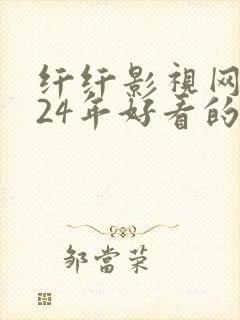 纤纤影视网
24年好看的
邹當荣